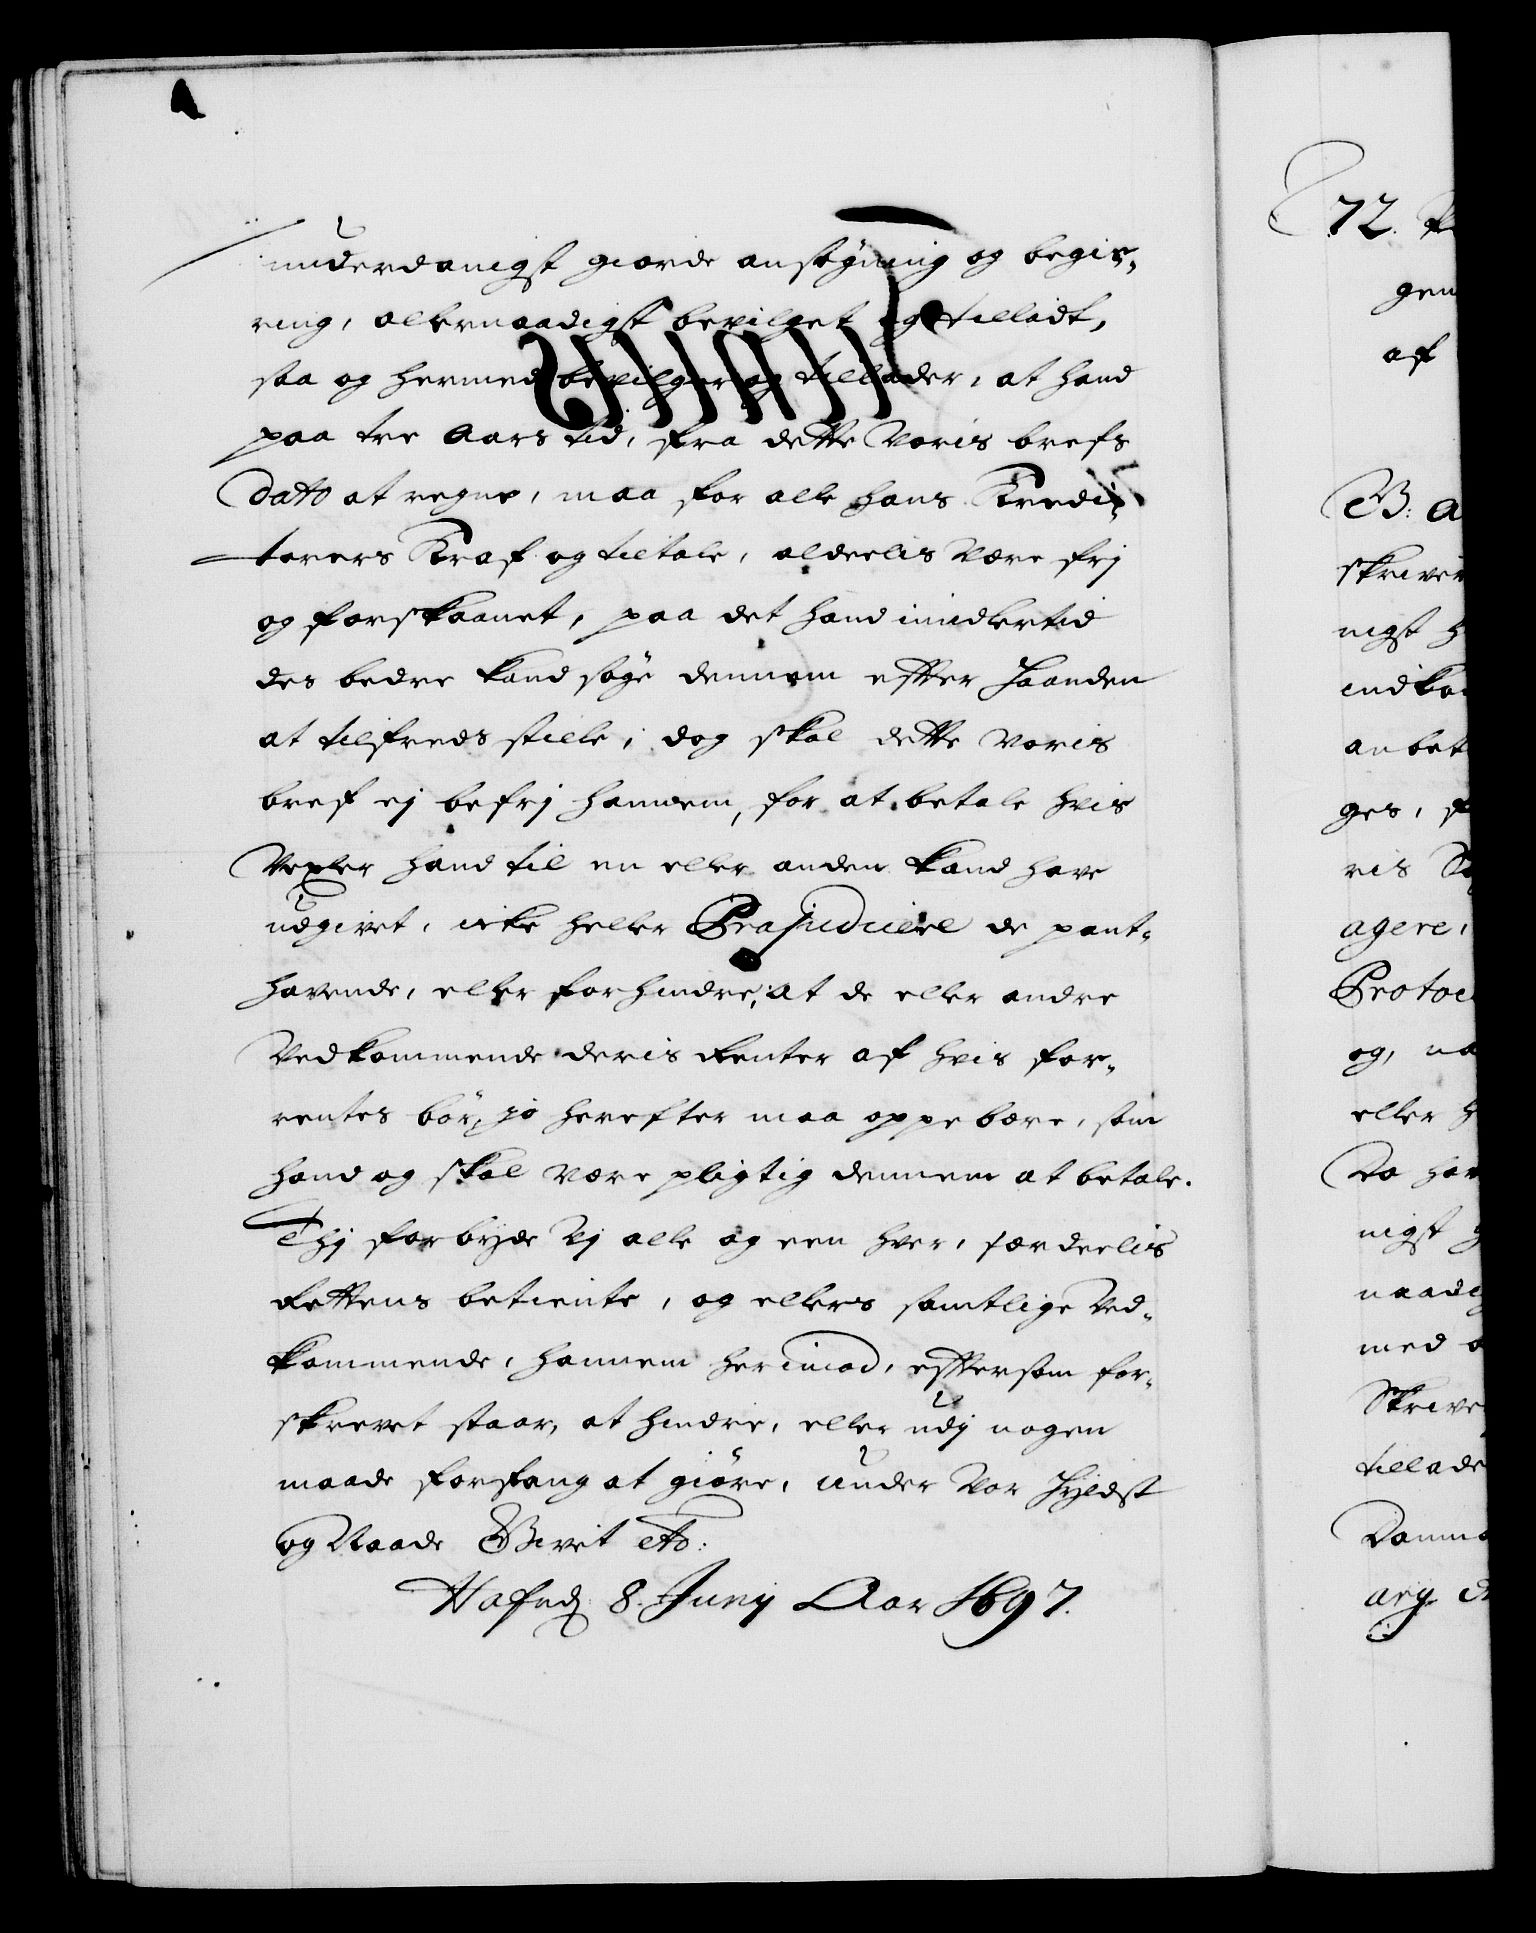 underdanigst giorde ansøgning og begie-
ring, allernaadigst bevilget og tilladt,
saa og hermed bevilger og tillader, at hand
paa tre Aars tid, fra dette Voris brefs
Dato at regne, maa for alle hans Kredi-
torers Kraf og tiltale, aldeelis være frj
og forskaanet, paa det hand imidlertid
des bedre kand søge dennem efter Haanden
at tilfreds stille; dog skal dette voris
bref ej befrj hannem, for at betale hvis
Vexler hand til en eller anden kand have
udgivet, icke heller Præjudicere de pant-
havende, eller forhindre, at de eller andre
Vedkommende deris Renter af hvis for-
rentes bør, jo herefter maa oppebære, som
hand og skal være pligtig dennem at betale.
Thj forbyde Vj alle og een hver, særdeelis
Rettens betiente, og ellers samtlige Ved-
kommende, hannem herimod, eftersom for-
skrevet staar, at hindre, eller udj nogen
maade forfang at giøre, under Vor Hyldst
og Naade Givet etc:
Hafnd: 8. Junij Aar 1697.
72.
gen
af
B: A
skriver
nigst h
indkom
anbet
ges, f
ris
agere,
Protoc
og, na
eller h
Da har
nigst g
naadig
med
Skrive
tillade
Danm
arg